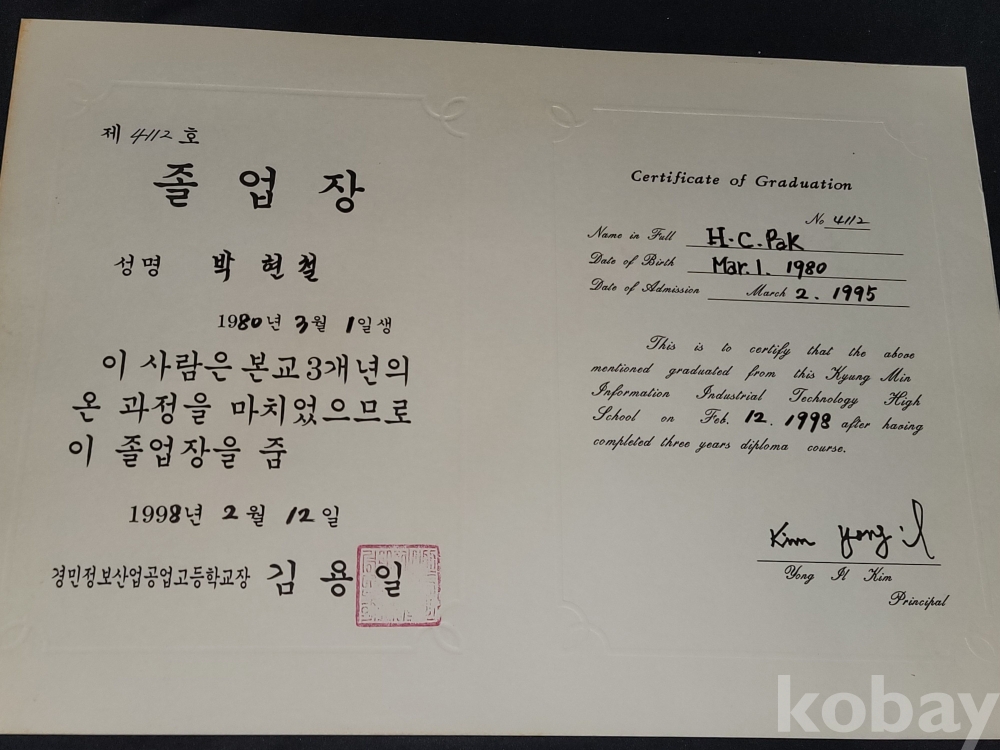 제 4112 호
졸 업 장
성명 박 현 철
1980년 3월 1일생
이 사람은 본교 3개년의
온 과정을 마치었으므로
이 졸업장을 줌
1998년 2월 12일
경민정보산업공업고등학교장 김 용 일
Certificate of Graduation
No 4112
Name in Full H.C.Pak
Date of Birth Mar.1. 1980
Date of Admission March 2. 1995
This is to certify that the above
mentioned graduated from this Kyung Min
Information Industrial Technology High
School on Feb. 12. 1998 after having
completed three years diploma course.
Kim Yong il
Yong Il Kim
Principal
kobay